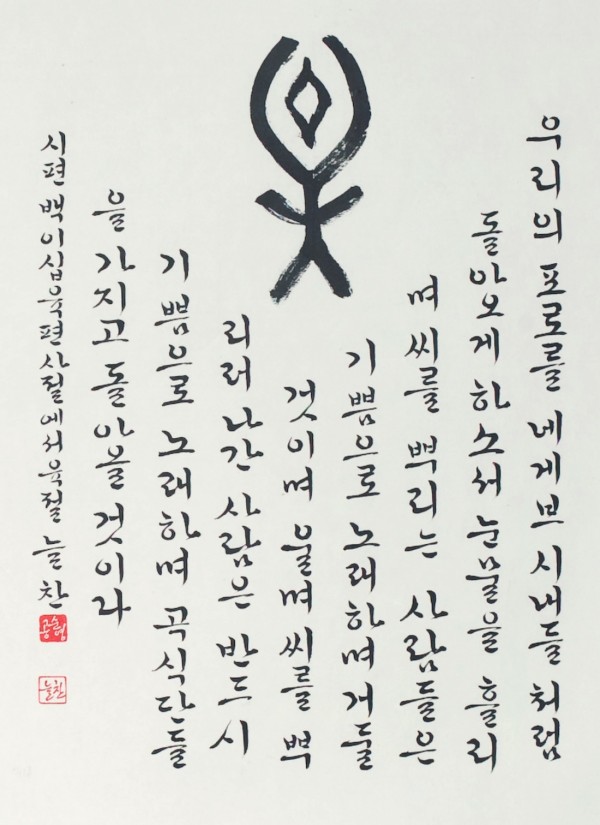 우리의 포로를 네게브 시내들 처럼
돌아오게 하소서 눈물을 흘리
며 씨를 뿌리는 사람들은
기쁨으로 노래하며 거둘
것이며 울며 씨를 뿌
리러 나간 사람은 반드시
기쁨으로 노래하며 곡식단들
을 가지고 돌아올 것이라
시편 백이십육편 사절에서 육절 늘찬
늘찬